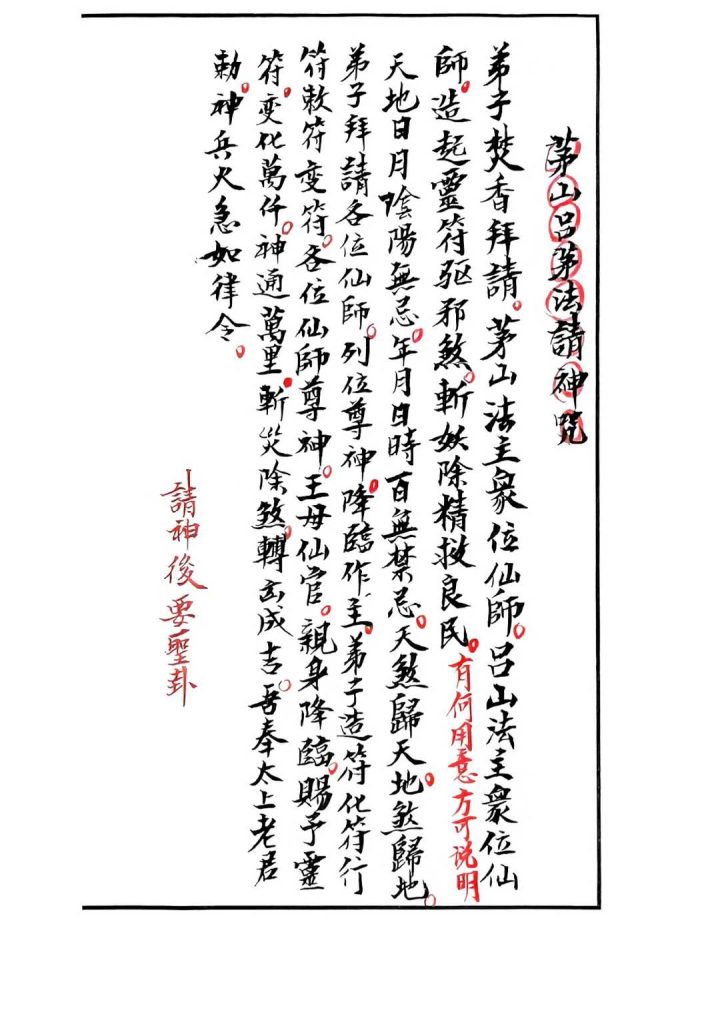 茅山吕茅法請神咒
弟子焚香拜請。茅山法主衆位仙師。吕山法主衆位仙
師。造起靈符驱邪煞。斬妖除精救良民。有何用意方可说明
天地日月陰陽無忌。年月日時百無禁忌。天煞歸天地。煞歸地。
弟子拜請各位仙師。列位尊神。降臨作主。弟子造符化符行
符敕符变符。各位仙師尊神。王母仙官。親身降臨。賜予靈
符。变化萬仟。神通萬里。斬災除煞。轉凶成吉。吾奉太上老君
勅。神兵火急如律令。
請神後要聖卦